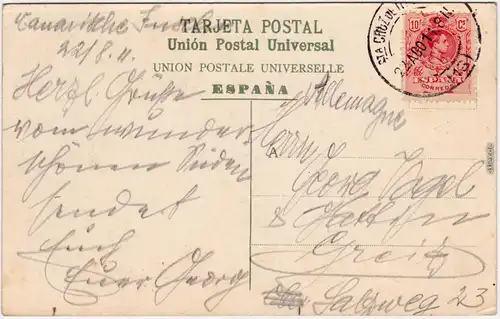 TARJETA POSTAL
Unión Postal Universal
UNION POSTALE UNIVERSELLE
ESPAÑA
22/8.11.
Herzl. Grüsse
vom wunder
schönen Süden
sendet
Euch
Euer Georg
Allemagne
A
Herrn
Georg Vogel
Greiz
Salzweg 23
STA CRUZ DE
22 AGO 11
10 Cs
ESPAÑA
CORREOS